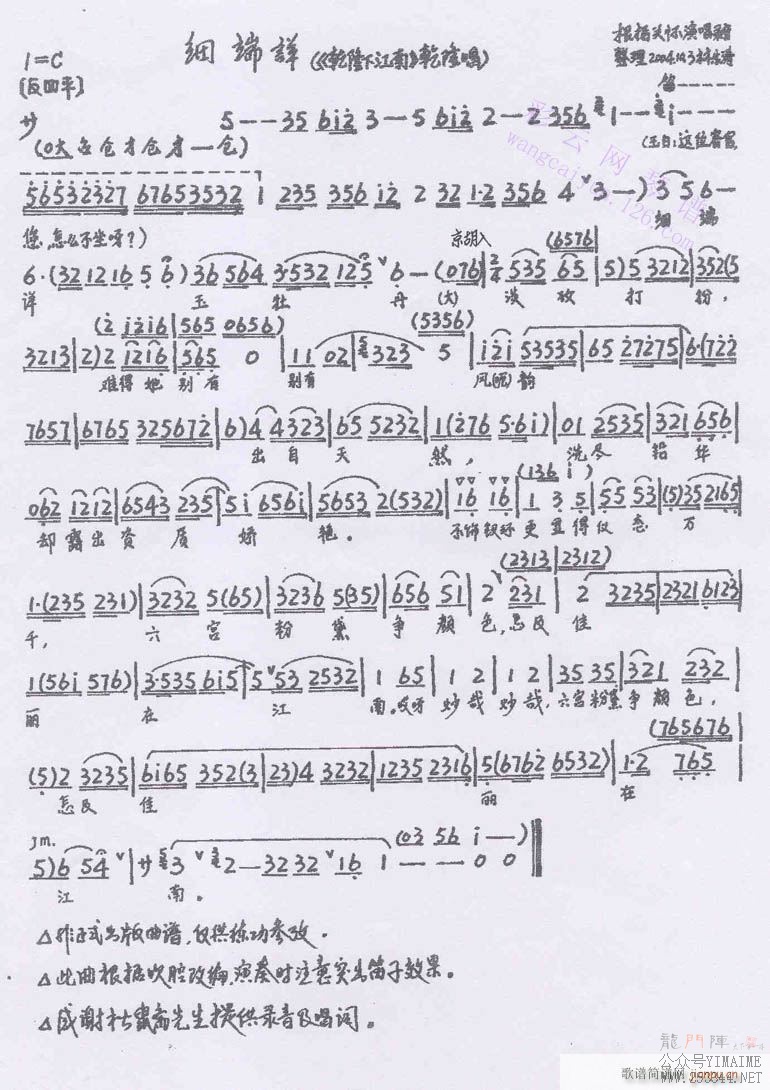 细端详(《乾隆下江南》乾隆唱)
1=C
[反四平]
笛------
5---35 6i2 3-5 6i2 2-2 356 1--- i-----
(王白:这位客官
565323327 67653532 | 235 356 i2 2 32 1·2 356 4 3-) 3 5 6-
细 端
您,怎么不坐呀?)
京胡入 (6576|
6·(32 12 16 5 6) 36 564 3·532 125 6-(076| 2/4 535 65 |5)5 3212|352(5
详 玉 牡 丹 (大) 淡 妆 打 扮,
(2 i2i6|565 0656) (5356)
3213|2)2 1216|565 0 |11 02|323 5 |i2i 53535|65 27275|6·(722
难得她 别有 别有 风(呃)韵
7657|6765 325672|6)4 4323|65 5232|1(276 5·6i)|01 2535|321 656|
出自天 然, 洗尽 铅华
062 1212|6543 235|5i 656i|5653 2(532)|16 16|1 3 5|55 53|(5)35 2165|
(136 i)
却露出资质娇艳。 不饰钗环更显得仪态 万
(2313|2312)
1·(235 231)|3232 5(65)|3236 5(35)|656 51|2 231|2 3235|2321 6123|
千, 六宫粉黛争颜色,怎及佳
1(56i 576)|3·535 6i5|5 53 2532|1 65|1 2|1 2|35 35|321 232|
丽 在 江 南。哎呀 妙哉 妙哉,六宫粉黛争颜色,
(765676|
(5)2 3235|6i65 352(3|23)4 3232|1235 2316|5(6762 6532)|1·2 765|
怎及佳 丽 在
(03 56 i—)
5)6 54 | 3 2—32 32 16 1 — — 0 0
江 南。
△非正式出版曲谱,仅供练功参考。
△此曲根据吹腔改编,演奏时注意突出笛子效果。
先生提供录音及唱词。
龍門陣
公众号YIMAIME
歌谱简谱网
www.253844.net